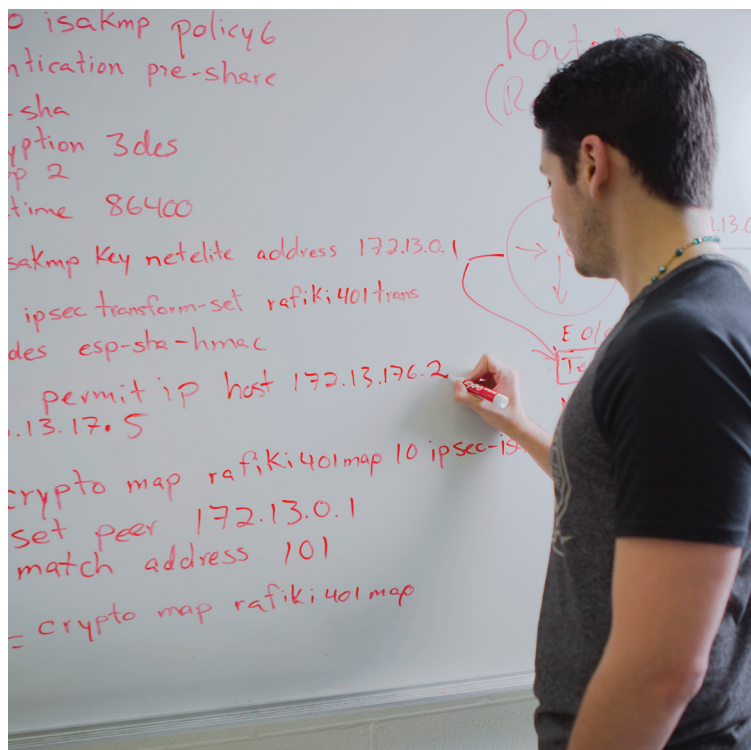 isakmp policy 6
pre-share
sha
3des
2
time 86400
key netelite address 172.13.0.1
ipsec transform-set rafiki401trans
des esp-sha-hmac
permit ip host 172.13.176.2
.13.17.5
crypto map rafiki401map 10 ipsec-is
set peer 172.13.0.1
match address 101
= crypto map rafiki401map